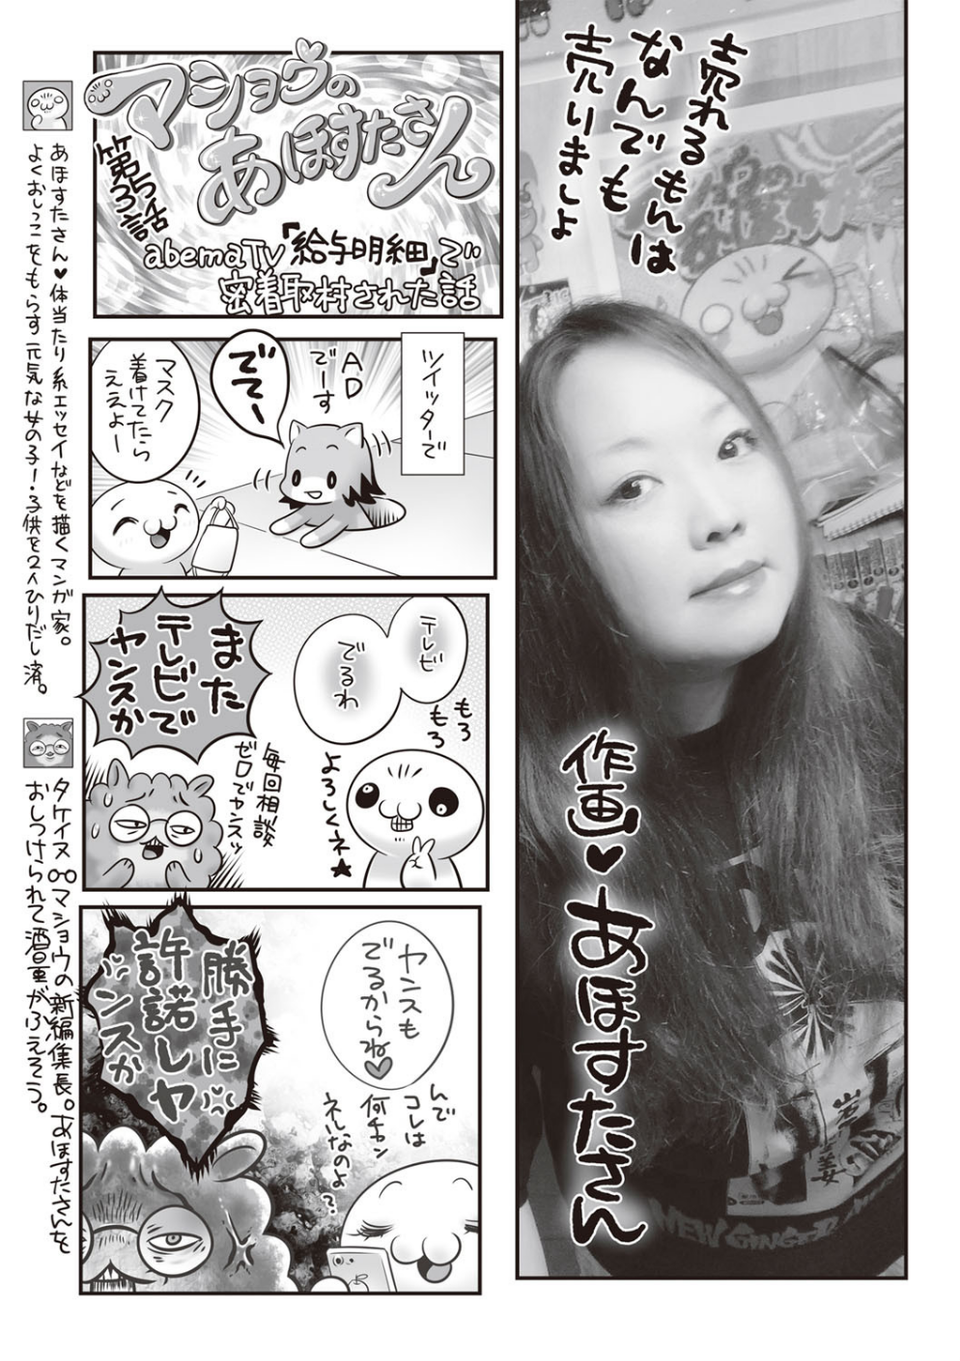 売れるもんは
なんでも
売りましょ
作画♥あほすたさん
マショウの
あほすたさん
第35話
abemaTV「給与明細」で
密着取材された話
ツイッターで
ADでーす
でてー
マスク
着けてたら
ええよー
テレビ
でるわ
もろもろ
よろしくネ★
また
テレビで
ヤンスか
毎回相談
ゼロでヤンスッ
ヤンスも
でるからね♥
んで
コレは
何チャン
ネルなのよ?
勝手に
許諾しヤ
ンスか
あほすたさん♥体当たり系エッセイなどを描くマンガ家。
よくおしっこをもらす元気な女の子!・子供を2人ひりだし済。
タケイヌ∞マショウの新編集長。あほすたさんを
おしつけられて酒量がふえそう。
NEW GING